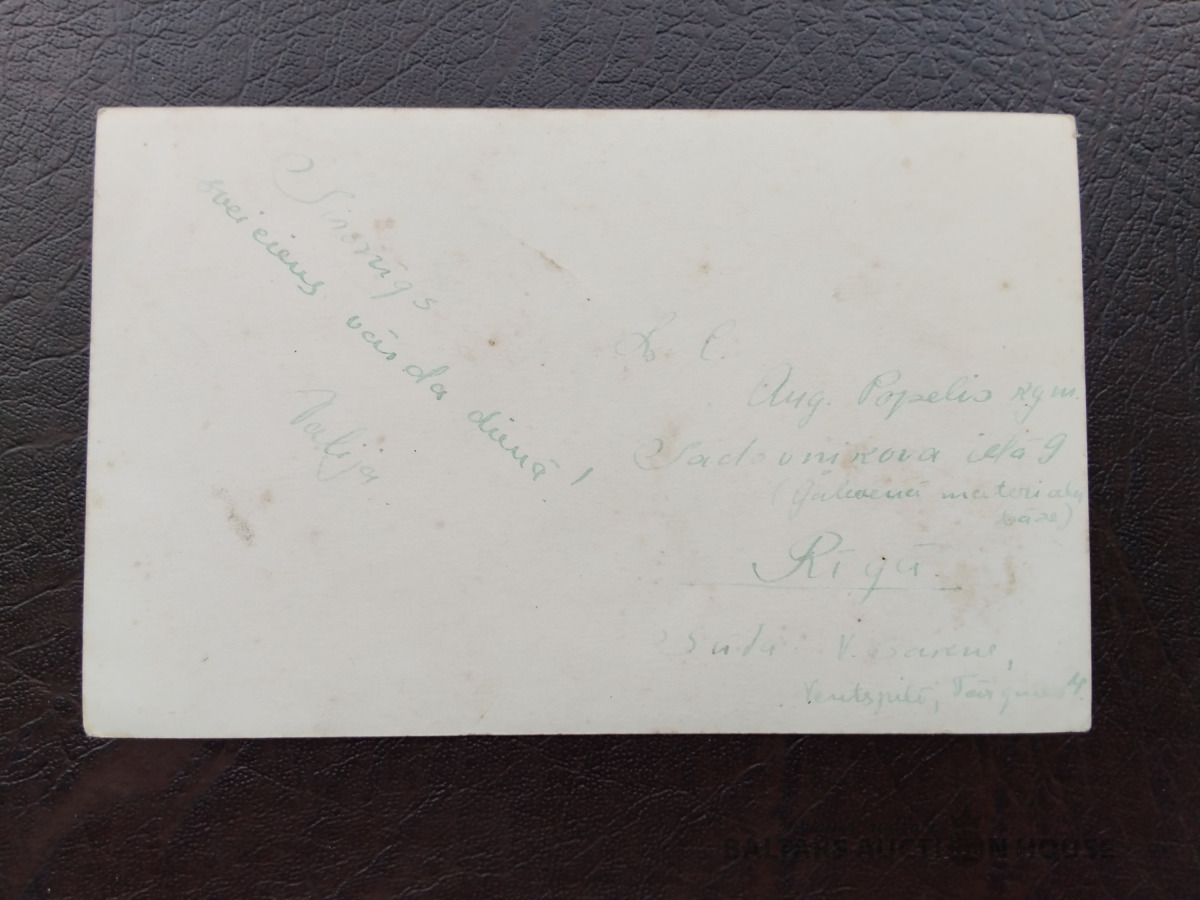 Sirsnīgs
sveiciens vārda dienā!
Valija
Aug. Popelis kgm.
Sadovnikova ielā 9
(Galvenā materialu
bāze)
Rīgā.
Sūta V.
Ventspilī,
BALTARS AUCTION HOUSE